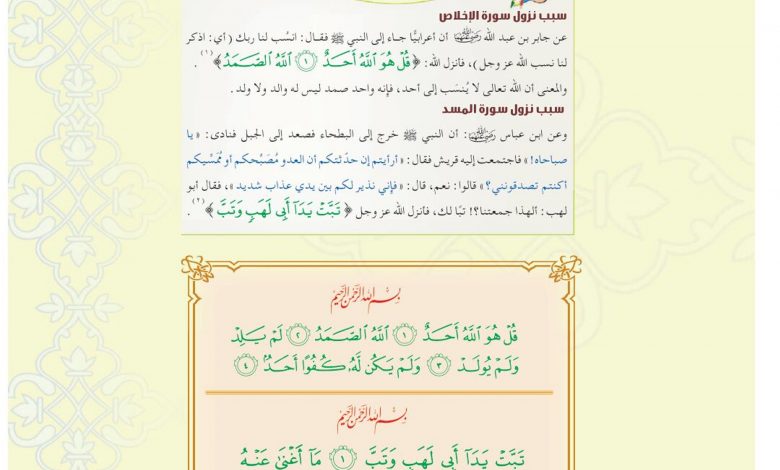 سبب نزول سورة الإخلاص
عن جابر بن عبد الله رضي الله عنه أن أعرابيًّا جاء إلى النبي ﷺ فقـال: انسُب لنا ربك ( أي: اذكر
لنا نسب الله عز وجل )، فأنزل الله: ﴿قُلْ هُوَ ٱللَّهُ أَحَدٌ ۝١ ٱللَّهُ ٱلصَّمَدُ﴾ (١) .
والمعنى أن الله تعالى لا يُنسَب إلى أحد، فإنه واحد صمد ليس له والد ولا ولد .
سبب نزول سورة المسد
وعن ابن عباس رضي الله عنه: أن النبي ﷺ خرج إلى البطحاء فصعد إلى الجبل فنادى: « يا
صباحاه! » فاجتمعت إليه قريش فقال: « أرأيتم إن حدثتكم أن العدو مُصَبِّحكم أو مُمَسِّيكم
أكنتم تصدقونني؟ » قالوا: نعم، قال: « فإني نذير لكم بين يدي عذاب شديد »، فقال أبو
لهب: ألهذا جمعتنا؟! تبًا لك، فأنزل الله عز وجل ﴿ تَبَّتْ يَدَآ أَبِى لَهَبٍ وَتَبَّ﴾ (٢) .
بسم الله الرحمن الرحيم
قُلْ هُوَ ٱللَّهُ أَحَدٌ ۝١ ٱللَّهُ ٱلصَّمَدُ ۝٢ لَمْ يَلِدْ
وَلَمْ يُولَدْ ۝٣ وَلَمْ يَكُن لَّهُۥ كُفُوًا أَحَدٌۢ ۝٤
بسم الله الرحمن الرحيم
تَبَّتْ يَدَآ أَبِى لَهَبٍ وَتَبَّ ۝١ مَآ أَغْنَىٰ عَنْهُ